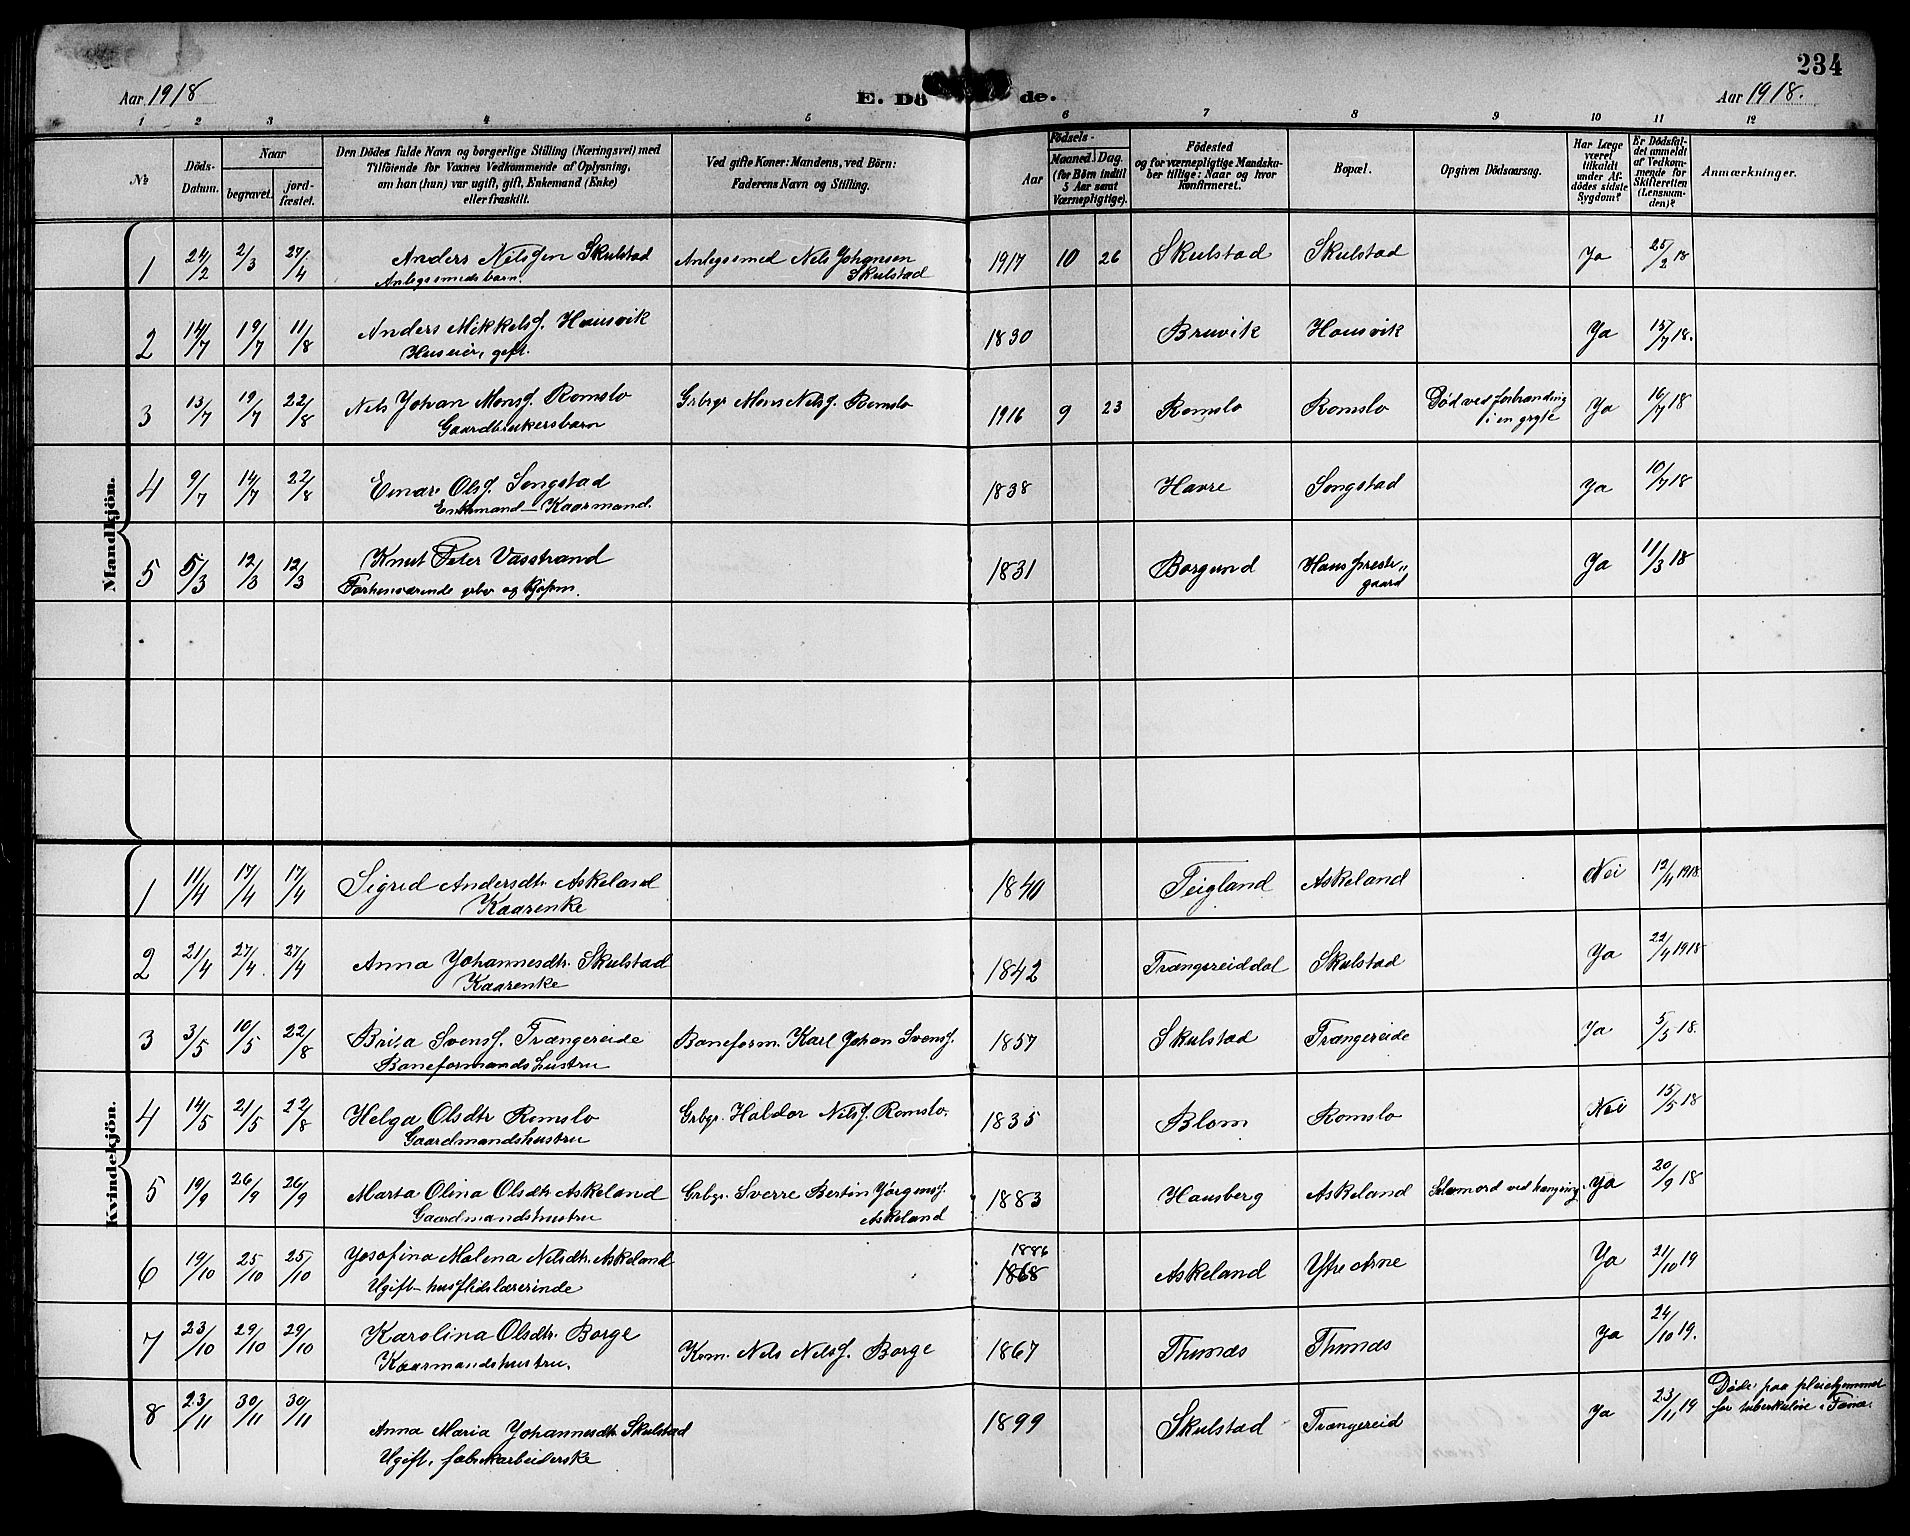 234
Aar 1918
E. Dö de.
Aar 1918.
1 2 3 4 5 6 7 8 9 10 11 12
№
Döds-Datum.
Naar
begravet.
jord-fæstet.
Den Dödes fulde Navn og borgerlige Stilling (Næringsvei) med
Tilföiende for Voxnes Vedkommende af Oplysning,
om han (hun) var ugift, gift, Enkemand (Enke)
eller fraskilt.
Ved gifte Koner: Mandens, ved Börn:
Faderens Navn og Stilling.
Födsels-
Aar
Maaned. Dag.
(for Börn indtil
5 Aar samt
Værnepligtige).
Födested
og for værnepligtige Mandska-
ber tillige: Naar og hvor
konfirmeret.
Bopæl.
Opgiven Dödsaarsag.
Har Læge
været
tilkaldt
under Af-
dödes sidste
Sygdom?
Er Dödsfal-
det anmeldt
af Vedkom-
mende for
Skifteretten
(Lensman-
den)?
Anmærkninger.
Mandkjön.
1 24/2 2/3 27/4 Anders Nilssen Skulstad Anlegssmed Nels Johansen 1917 10 26 Skulstad Skulstad Ja 25/2 18
Anlegssmedsbarn. Skulstad
2 14/7 19/7 11/8 Anders Mikkelsf. Hausvik 1830 Bruvik Hausvik Ja 15/7 18.
Huseier, gift.
3 13/7 19/7 22/8 Nels Johan Monsf. Romslo Grbgr Mons Nelsf. Romslo 1916 9 23 Romslo Romslo Död ved forbrænding Ja 16/7 18
Gaardbrukersbarn i en gryte
4 9/7 14/7 22/8 Einar Olsf. Songstad 1838 Havre Songstad Ja 10/7 18
Enkemand - Kaarmand.
5 5/3 12/3 12/3 Knut Peter Vasstrand 1831 Borgund Haus preste- Ja 11/3 18
Forhenværende grbr og gaard
Kvindekjön.
1 11/4 17/4 17/4 Sigrid Andersdtr Askeland 1840 Teigland Askeland Nei 12/4 1918
Kaarenke
2 21/4 27/4. 27/4 Anna Johannesdtr. Skulstad 1842 Trængereiddal Skulstad Ja 22/4 1918
Kaarenke
3 3/5 10/5 22/8 Brita Svensf. Trængereide Baneform. Karl Johan Svensf. 1857 Skulstad Trængereide Ja 5/5 18.
Baneformandshustru
4 14/5 21/5 22/8 Helga Olsdtr Romslo Grbgr. Haldor Nilsf. Romslo. 1835 Blom Romslo Nei 15/5 18
Gaardmandshustru
5 19/9 26/9 26/9 Marta Olina Olsdtr Askeland Grbgr. Sverre Bertin Jörgensf. 1883 Hausberg Askeland Selvmord ved hængning. Ja 20/9 18
Gaardmandshustru Askeland
6 19/10 25/10 25/10 Josefina Malena Nilsdtr. Askeland 1886 1868 Askeland Ytre Arne Ja 21/10 19
Ugift - husflidslærerinde
7 23/10 29/10 29/10 Karolina Olsdtr. Borge Kom. Nels Nelsf. Borge 1867 Thunes Thunes Ja 24/10 19.
Kaarmandshustru.
8 23/11 30/11 30/11 Anna Maria Johannesdtr Skulstad 1899 Skulstad Trængereid Ja 23/11 19 Döde paa pleiehjemmet
Ugift. fabrikarbeiderske for tuberkulöse i Fana.